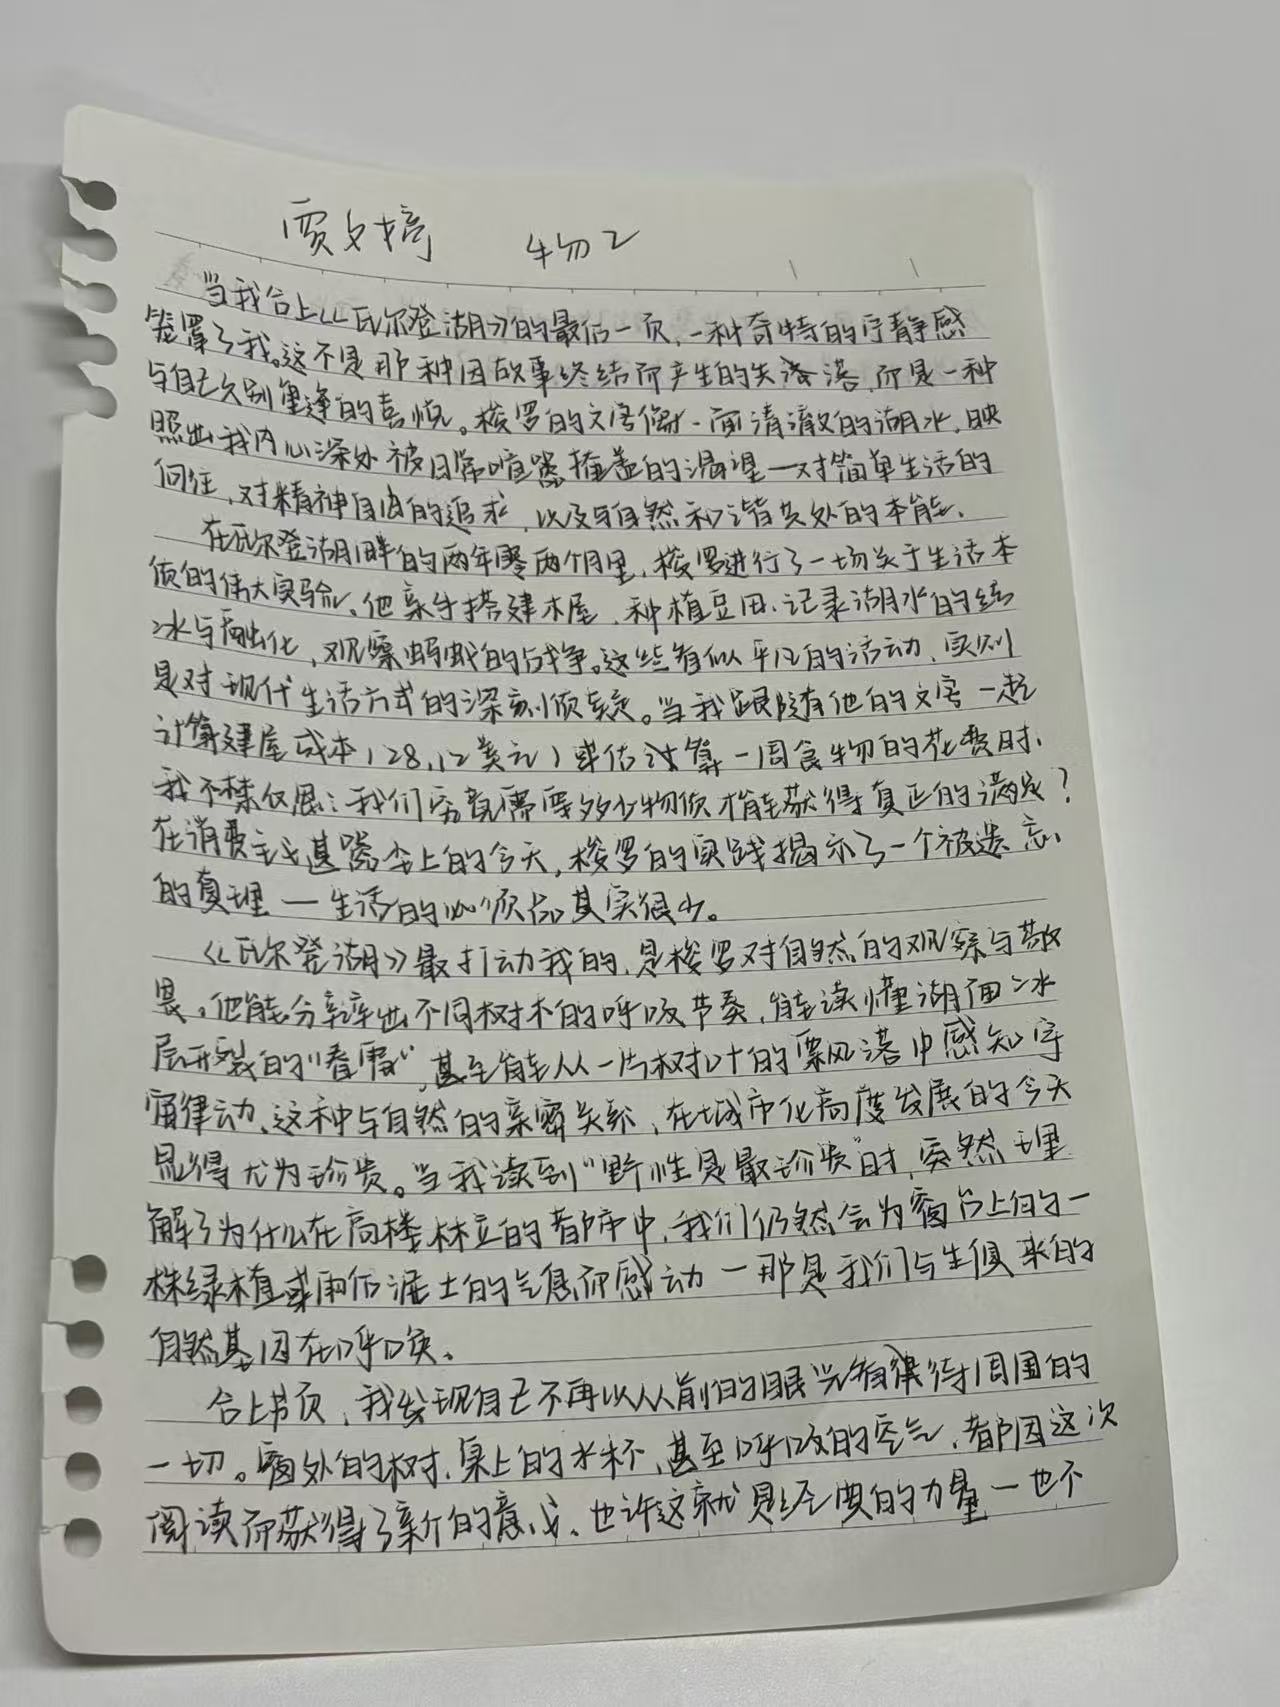 贾文婷 物2
当我合上《瓦尔登湖》的最后一页,一种奇特的宁静感
笼罩了我。这不是那种因故事终结而产生的失落落,而是一种
与自己久别重逢的喜悦。梭罗的文字像一面清澈的湖水,映
照出我内心深处被日常喧嚣掩盖的渴望—对简单生活的
向往,对精神自由的追求,以及与自然和谐共处的本能、
在瓦尔登湖畔的两年零两个月里,梭罗进行了一场关于生活本
质的伟大实验、他亲手搭建木屋、种植豆田、记录湖水的结
冰与融化,观察蚂蚁的战争。这些看似平凡的活动、实则
是对现代生活方式的深刻质疑。当我跟随他的文字一起
计算建屋成本(28.12美元)或估计算一周食物的花费时、
我不禁反思:我们究竟需要多少物质才能获得真正的满足?
在消费主义甚嚣尘上的今天,梭罗的实践揭示了一个被遗忘
的真理—生活的必须品其实很少。
《瓦尔登湖》最打动我的,是梭罗对自然的观察与敬
畏。他能分辨出不同树木的呼吸节奏,能读懂湖面冰
层开裂的"春雷",甚至能从一片树叶的飘落中感知宇
宙律动、这种与自然的亲密关系、在城市化高度发展的今天
显得尤为珍贵。当我读到"野性是最珍贵"时,突然理
解了为什么在高楼林立的都市中,我们仍然会为窗台上的一
株绿植或雨后泥土的气息而感动—那是我们与生俱来的
自然基因在呼唤、
合上书页,我发现自己不再以从前的眼光看待周围的
一切。窗外的树、桌上的水杯、甚至呼吸的空气、都因这次
阅读而获得了新的意义、也许这就是经典的力量—也不